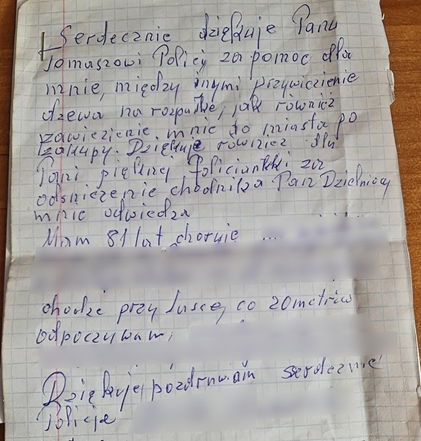 Serdecznie dziękuje Panu
Tomaszowi Policji za pomoc dla
mnie, między innymi przywiezienie
drzewa na rozpałkę, jak również
zawiezienie mnie do miasta po
zakupy. Dziękuje również dla
Pani pięknej Policjantki za
odśnieżenie chodnika Pan Dzielnicowy
mnie odwiedza
Mam 81 lat choruje ...
chodzę przy lasce, co 20 metrów
odpoczywam,
Dziękuję, pozdrawiam serdecznie
Policję